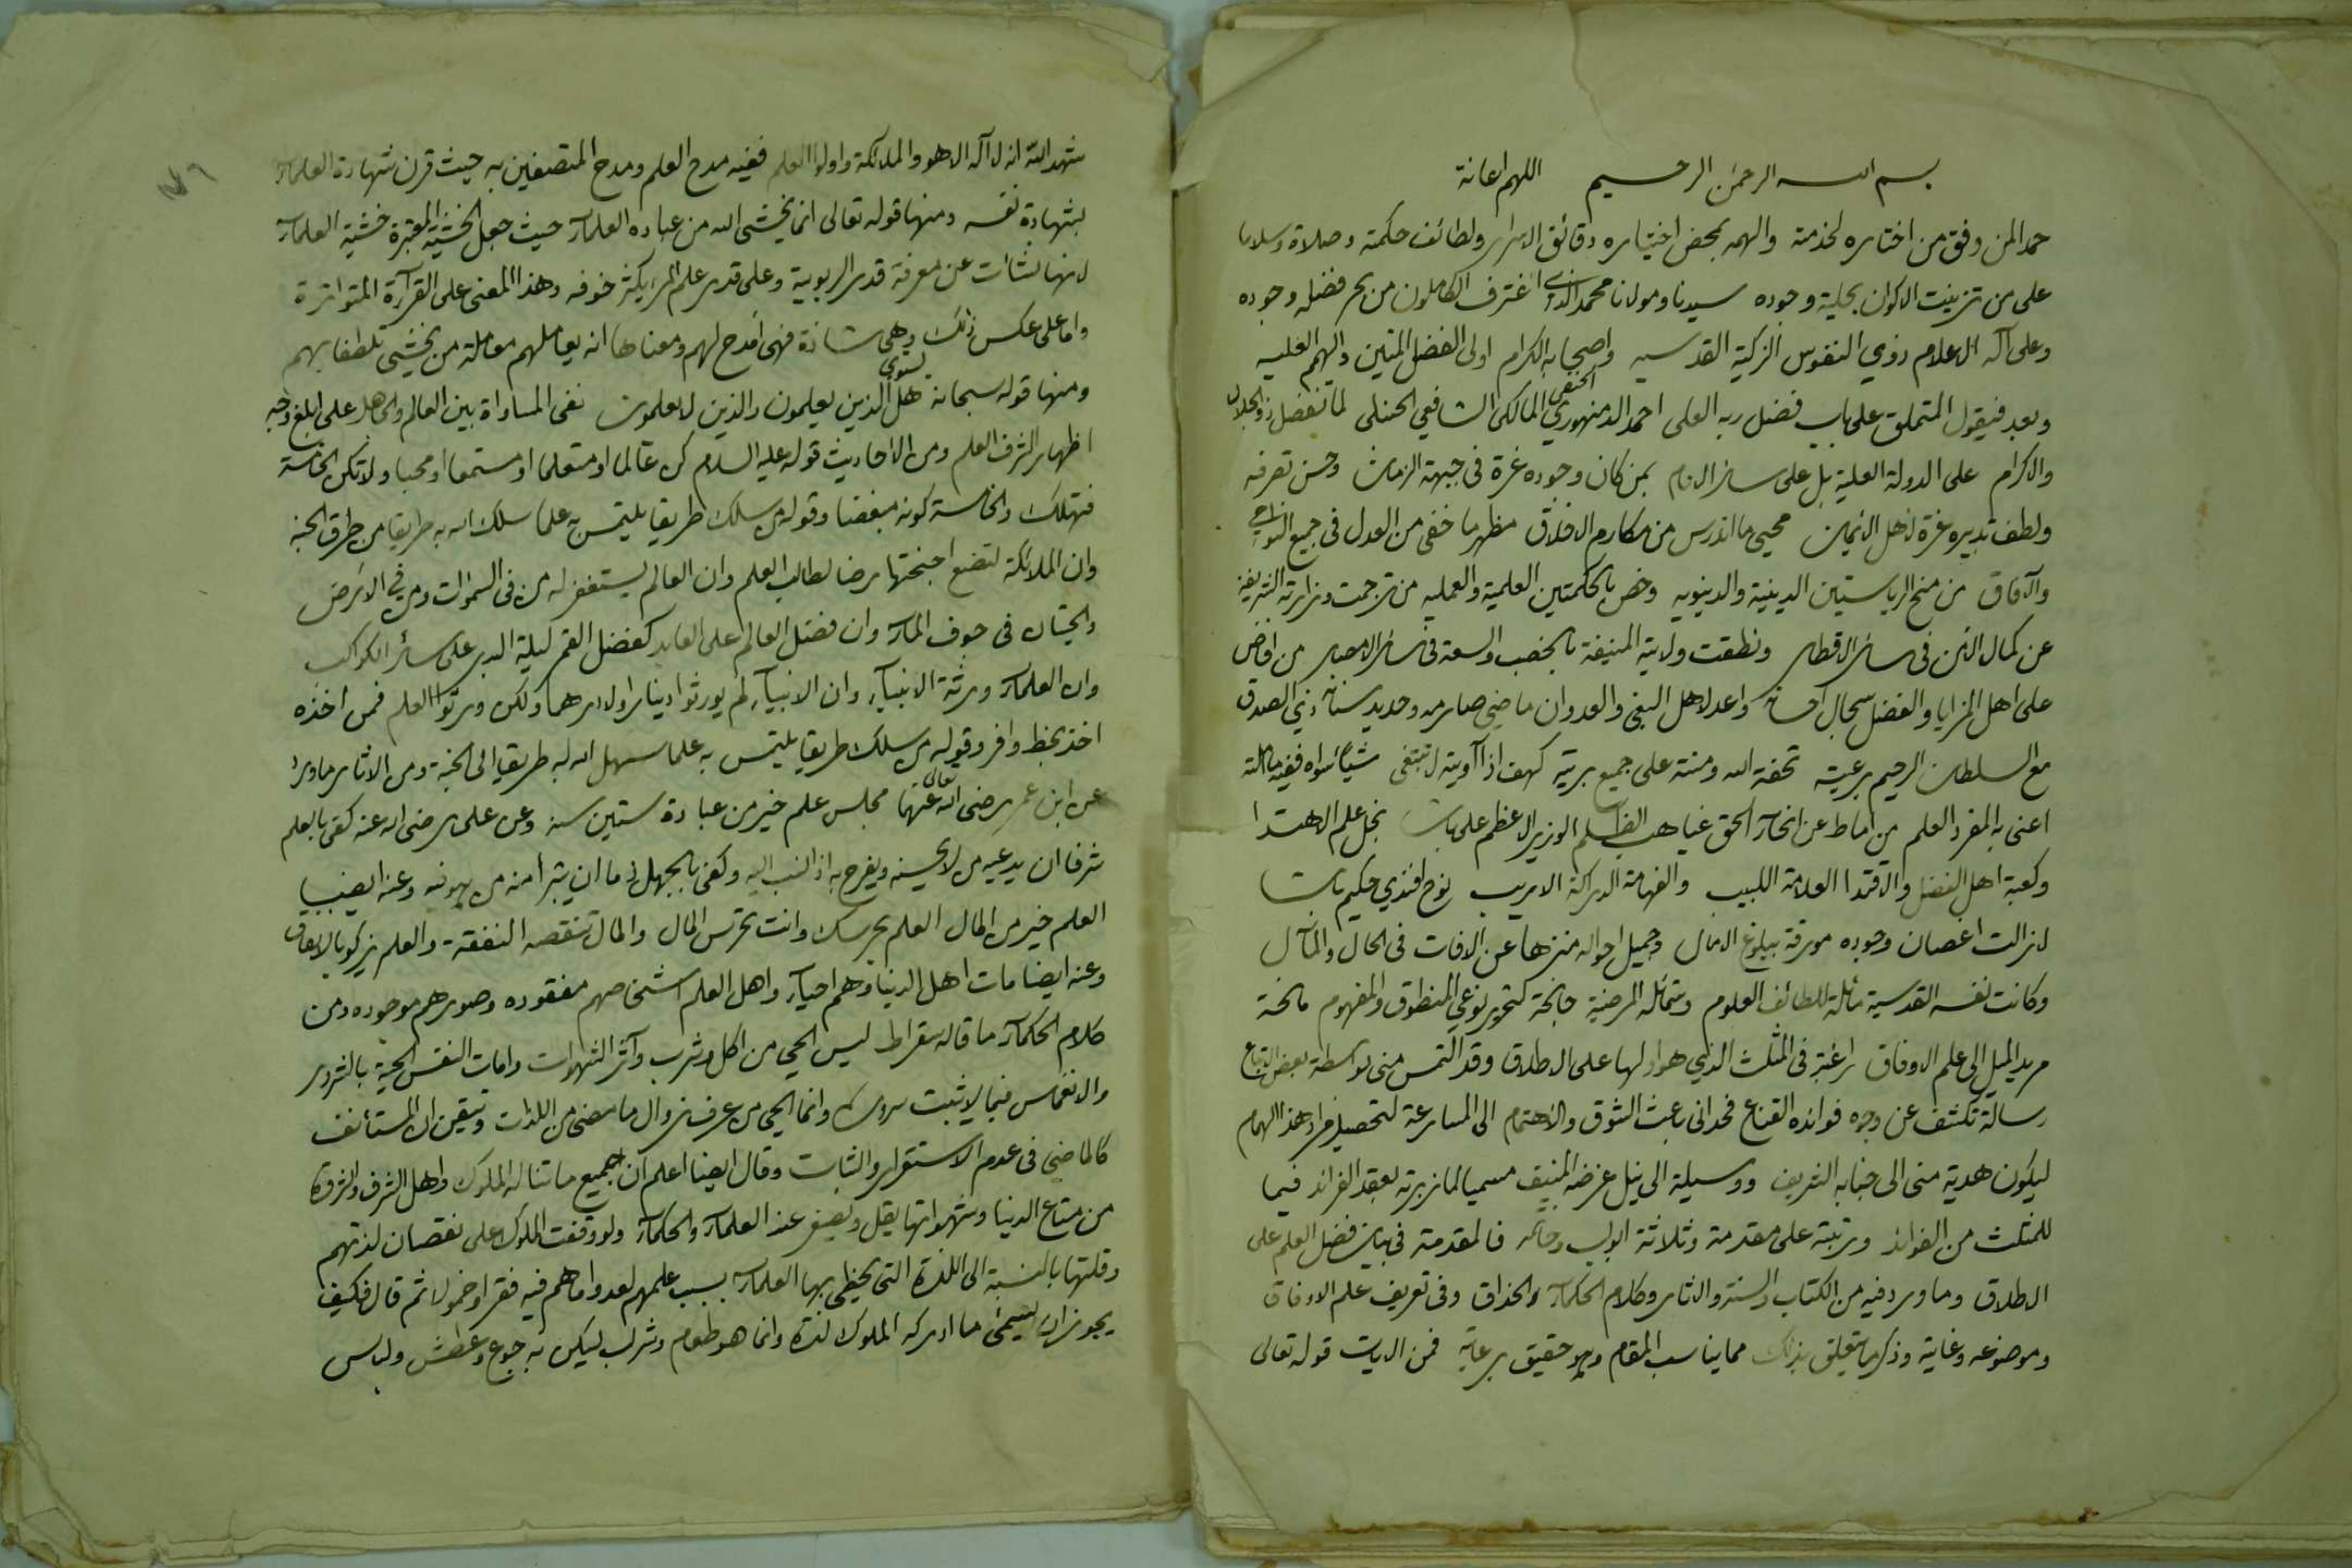 بسم الله الرحمن الرحيم اللهم اعانة
حمدا لمن وفق من اختاره لخدمته والهمه بمحض اختياره دقائق الاسرار ولطائف حكمته وصلاة وسلاما
على من تزينت الاكوان بحلية وجوده سيدنا ومولانا محمد الذي اغترف الكاملون من بحر فضله وجوده
وعلى آله الاعلام ذوي النفوس الزكية القدسيه واصحابه الكرام اولى الفضل المتين والهمم العليه
وبعد فيقول المتملق على باب فضل ربه العلى احمد الدمنهوري الحنفي المالكى الشافعي الحنبلى لما تفضل ذو الجلال
والاكرام على الدولة العلية بل على سائر الانام بمن كان وجوده غرة فى جبهة الزمان وحسن تصرفه
ولطف تدبيره عزة لاهل الايمان محيي ما اندرس من مكارم الاخلاق مظهر ما خفى من العدل فى جميع النواحي
والآفاق من منح الرياستين الدينية والدنيويه وخص بالحكمتين العلمية والعمليه من ترجمت وزارته الشريفة
عن كمال الامن فى سائر الاقطار ونطقت ولايته المنيفة بالخصب والسعة فى سائر الامصار من افاض
على اهل المزايا والفضل سجال احسانه واعد لاهل البغى والعدوان ماضي صارمه وحديد سنانه ذي الصدق
مع السلطان الرحيم برعيته تحفة الله ومنته على جميع بريته كهف اذا آويته لا تبتغى شيأ سواه ففيه ما
اعنى به المفرد العلم من اماط عن انحاء الحق غياهب الظلم الوزير الاعظم على باشا نجل علم الاهتدا
وكعبة اهل الفضل والاقتدا العلامة اللبيب والفهامة الدراكة الاريب نوح افندي حكيم باشا
لا زالت اغصان وجوده مورقة ببلوغ الامال وجميل احواله منزها عن الافات فى الحال والمآل
وكانت نفسه القدسية مائلة للطائف العلوم وشمائله المرضية جانحة لتحرير نوعي المنطوق والمفهوم مانحة
مريد الميل الى علم الاوفاق راغبة فى المثلث الذي هو اولها على الاطلاق وقد التمس منى بواسطة بعض الاتباع
رسالة تكشف عن وجوه فوائده القناع فحدانى باعث الشوق والاهتمام الى المسارعة لتحصيل مراد هذا الهمام
ليكون هدية منى الى جنابه الشريف ووسيلة الى نيل غرضه المنيف مسميا لما زبرته بعقد الفرائد فيما
للمثلث من الفوائد ورتبته على مقدمة وثلاثة ابواب وخاتمه فالمقدمة فى بيان فضل العلم على
الاطلاق وما ورد فيه من الكتاب والسنة والاثار وكلام الحكماء والحذاق وفى تعريف علم الاوفاق
وموضوعه وغايته وذكر ما يتعلق بذلك مما يناسب المقام وهو حقيق برعايته فمن الايات قوله تعالى
شهد الله انه لا آله الا هو والملائكة واولوا العلم ففيه مدح العلم ومدح المتصفين به حيث قرن شهادة العلماء
بشهادة نفسه ومنها قوله تعالى انما يخشى الله من عباده العلماء حيث جعل الخشية المعتبرة خشية العلماء
لانها نشأت عن معرفة قدر الربوبية وعلى قدر علم المرء يكثر خوفه وهذا المعنى على القرآءة المتواترة
واما على عكس ذلك وهى شاذة فهى امدح لهم ومعناها انه يعاملهم معاملة من يخشى تلطفا بهم
ومنها قوله سبحانه هل يستوي الذين يعلمون والذين لا يعلمون نفى المساواة بين العالم والجاهل على ابلغ وجه
اظهارا لشرف العلم ومن الاحاديث قوله عليه السلام كن عالما او متعلما او مستمعا او محبا ولا تكن الخامسة
فتهلك والخامسة كونه مبغضا وقوله من سلك طريقا يلتمس به علما سلك الله به طريقا من طرق الجنة
وان الملائكة لتضع اجنحتها رضا لطالب العلم وان العالم يستغفر له من فى السموات ومن في الارض
والحيتان فى جوف الماء وان فضل العالم على العابد كفضل القمر ليلة البدر على سائر الكواكب
وان العلماء ورثة الانبيآء وان الانبيآء لم يورثوا دينارا ولا درهما ولكن ورثوا العلم فمن اخذه
اخذ بحظ وافر وقوله من سلك طريقا يلتمس به علما سهل الله له طريقا الى الجنة ومن الاثار ما ورد
عن ابن عمر رضى الله تعالى عنهما مجلس علم خير من عبادة ستين سنه وعن على رضى الله عنه كفى بالعلم
شرفا ان يدعيه من لا يحسنه ويفرح به اذا نسب اليه وكفى بالجهل ذما ان يتبرأ منه من هو فيه وعنه ايضا
العلم خير من المال العلم يحرسك وانت تحرس المال والمال تنقصه النفقة والعلم يزكو بالانفاق
وعنه ايضا مات اهل الدنيا وهم احيآء واهل العلم اشخاصهم مفقوده وصورهم موجوده ومن
كلام الحكماء ما قاله سقراط ليس الحي من اكل وشرب وآثر الشهوات وامات النفس الحية بالشرور
والانغماس فيما لا يثبت سروره وانما الحي من عرف زوال ما مضى من اللذات وتيقن ان المستأنف
كالماضي فى عدم الاستقرار والثبات وقال ايضا اعلم ان جميع ما تناله الملوك واهل الشرف والثروة
من متاع الدنيا وشهواتها يقل ويصغر عند العلماء والحكماء ولو وقفت الملوك على نقصان لذتهم
وقلتها بالنسبة الى اللذة التى يحظى بها العلماء بسبب علمهم لعدوا ما هم فيه فقرا وخمولا ثم قال فكيف
يجوز ان يسمى ما ادركه الملوك لذة وانما هو طعام وشراب ليسكن به جوع وعطش ولباس